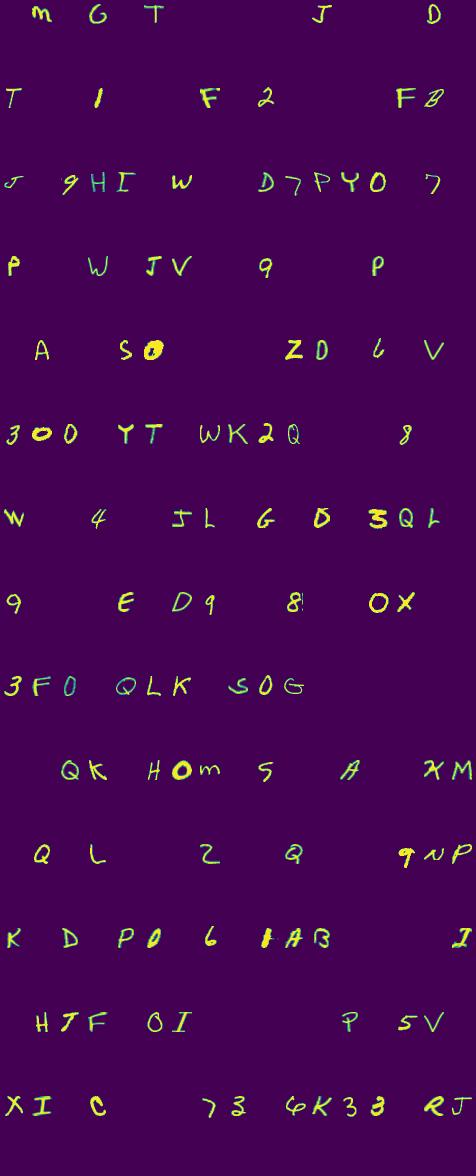 M G T J D
T 1 F 2 F B
J 9 H I W D 7 P Y O 7
P W J V 9 P
A S 0 Z D 6 V
3 0 0 Y T W K 2 Q 8
W 4 J L G D 3 Q L
9 E D 9 8 O X
3 F 0 Q L K S O G
Q K H O M 5 A X M
Q L 2 Q 9 N P
K D P 0 6 1 A B I
H J F O I P 5 V
X I C 7 3 6 K 3 3 R J